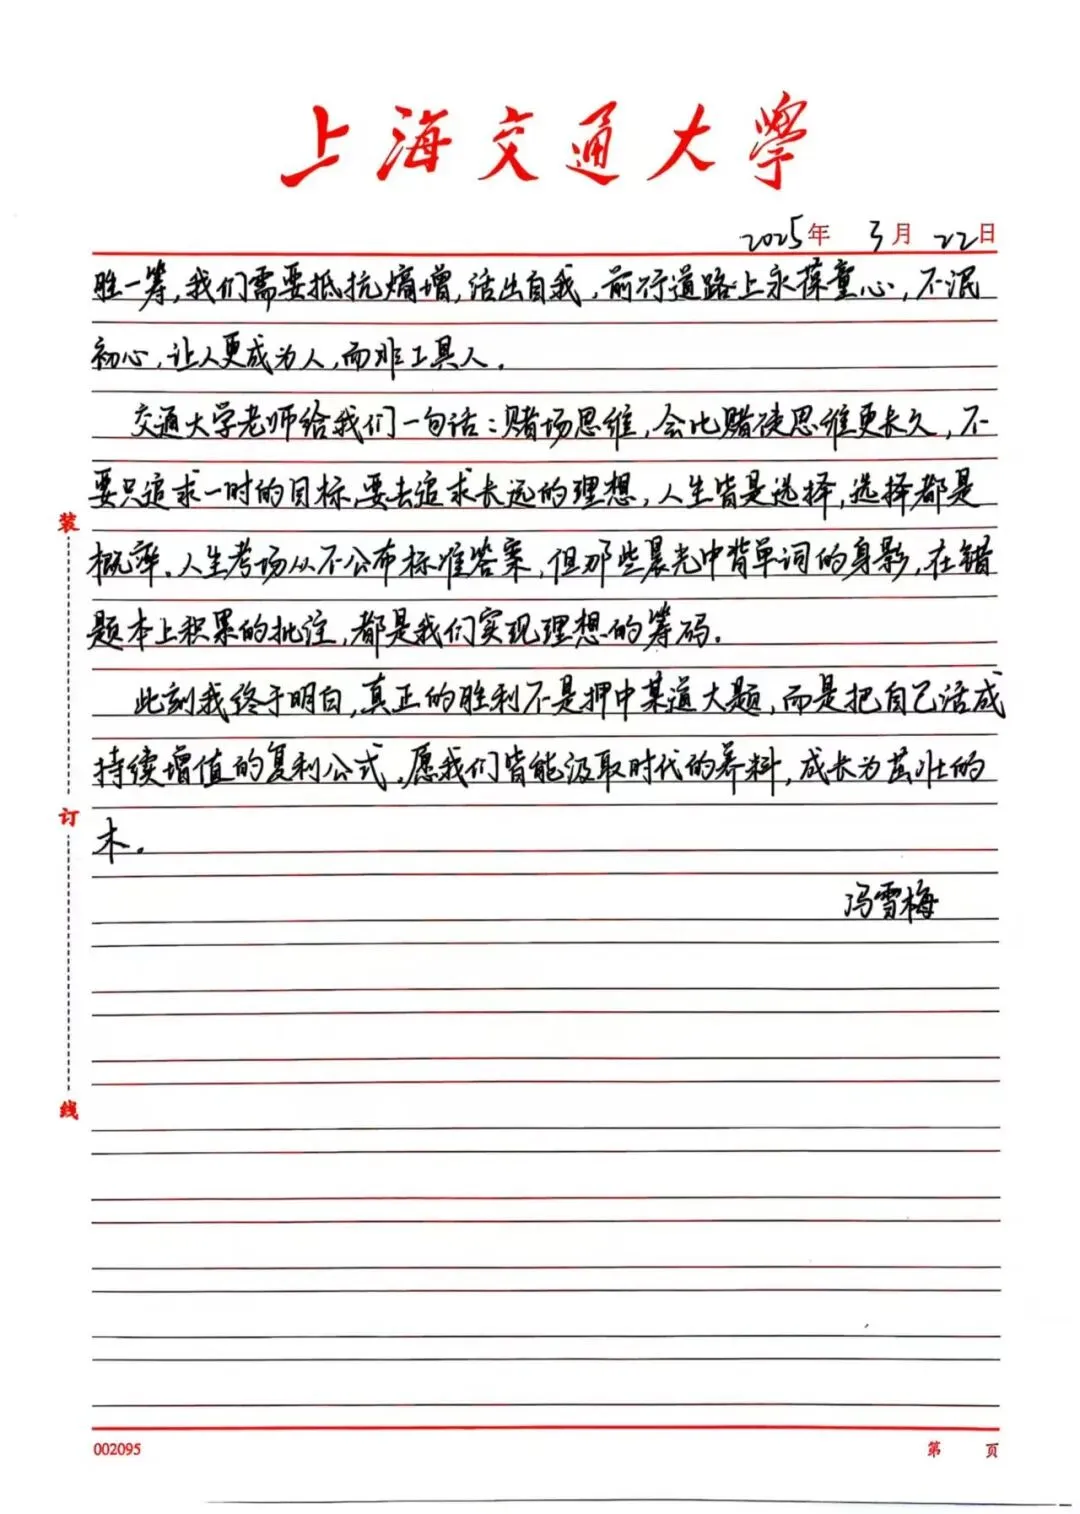 上海交通大學
2025年 3月 22日
胜一筹,我们需要抵抗熵增,活出自我,前行道路上永葆童心,不泯
初心,让人更成为人,而非工具人。
交通大学老师给我们一句话:赌场思维,会比赌徒思维更长久,不
要只追求一时的目标,要去追求长远的理想,人生皆是选择,选择都是
概率。人生考场从不公布标准答案,但那些晨光中背单词的身影,在错
题本上积累的批注,都是我们实现理想的筹码。
此刻我终于明白,真正的胜利不是押中某道大题,而是把自己活成
持续增值的复利公式,愿我们皆能汲取时代的养料,成长为茁壮的
木。
冯雪梅
装
订
线
002095
第 页